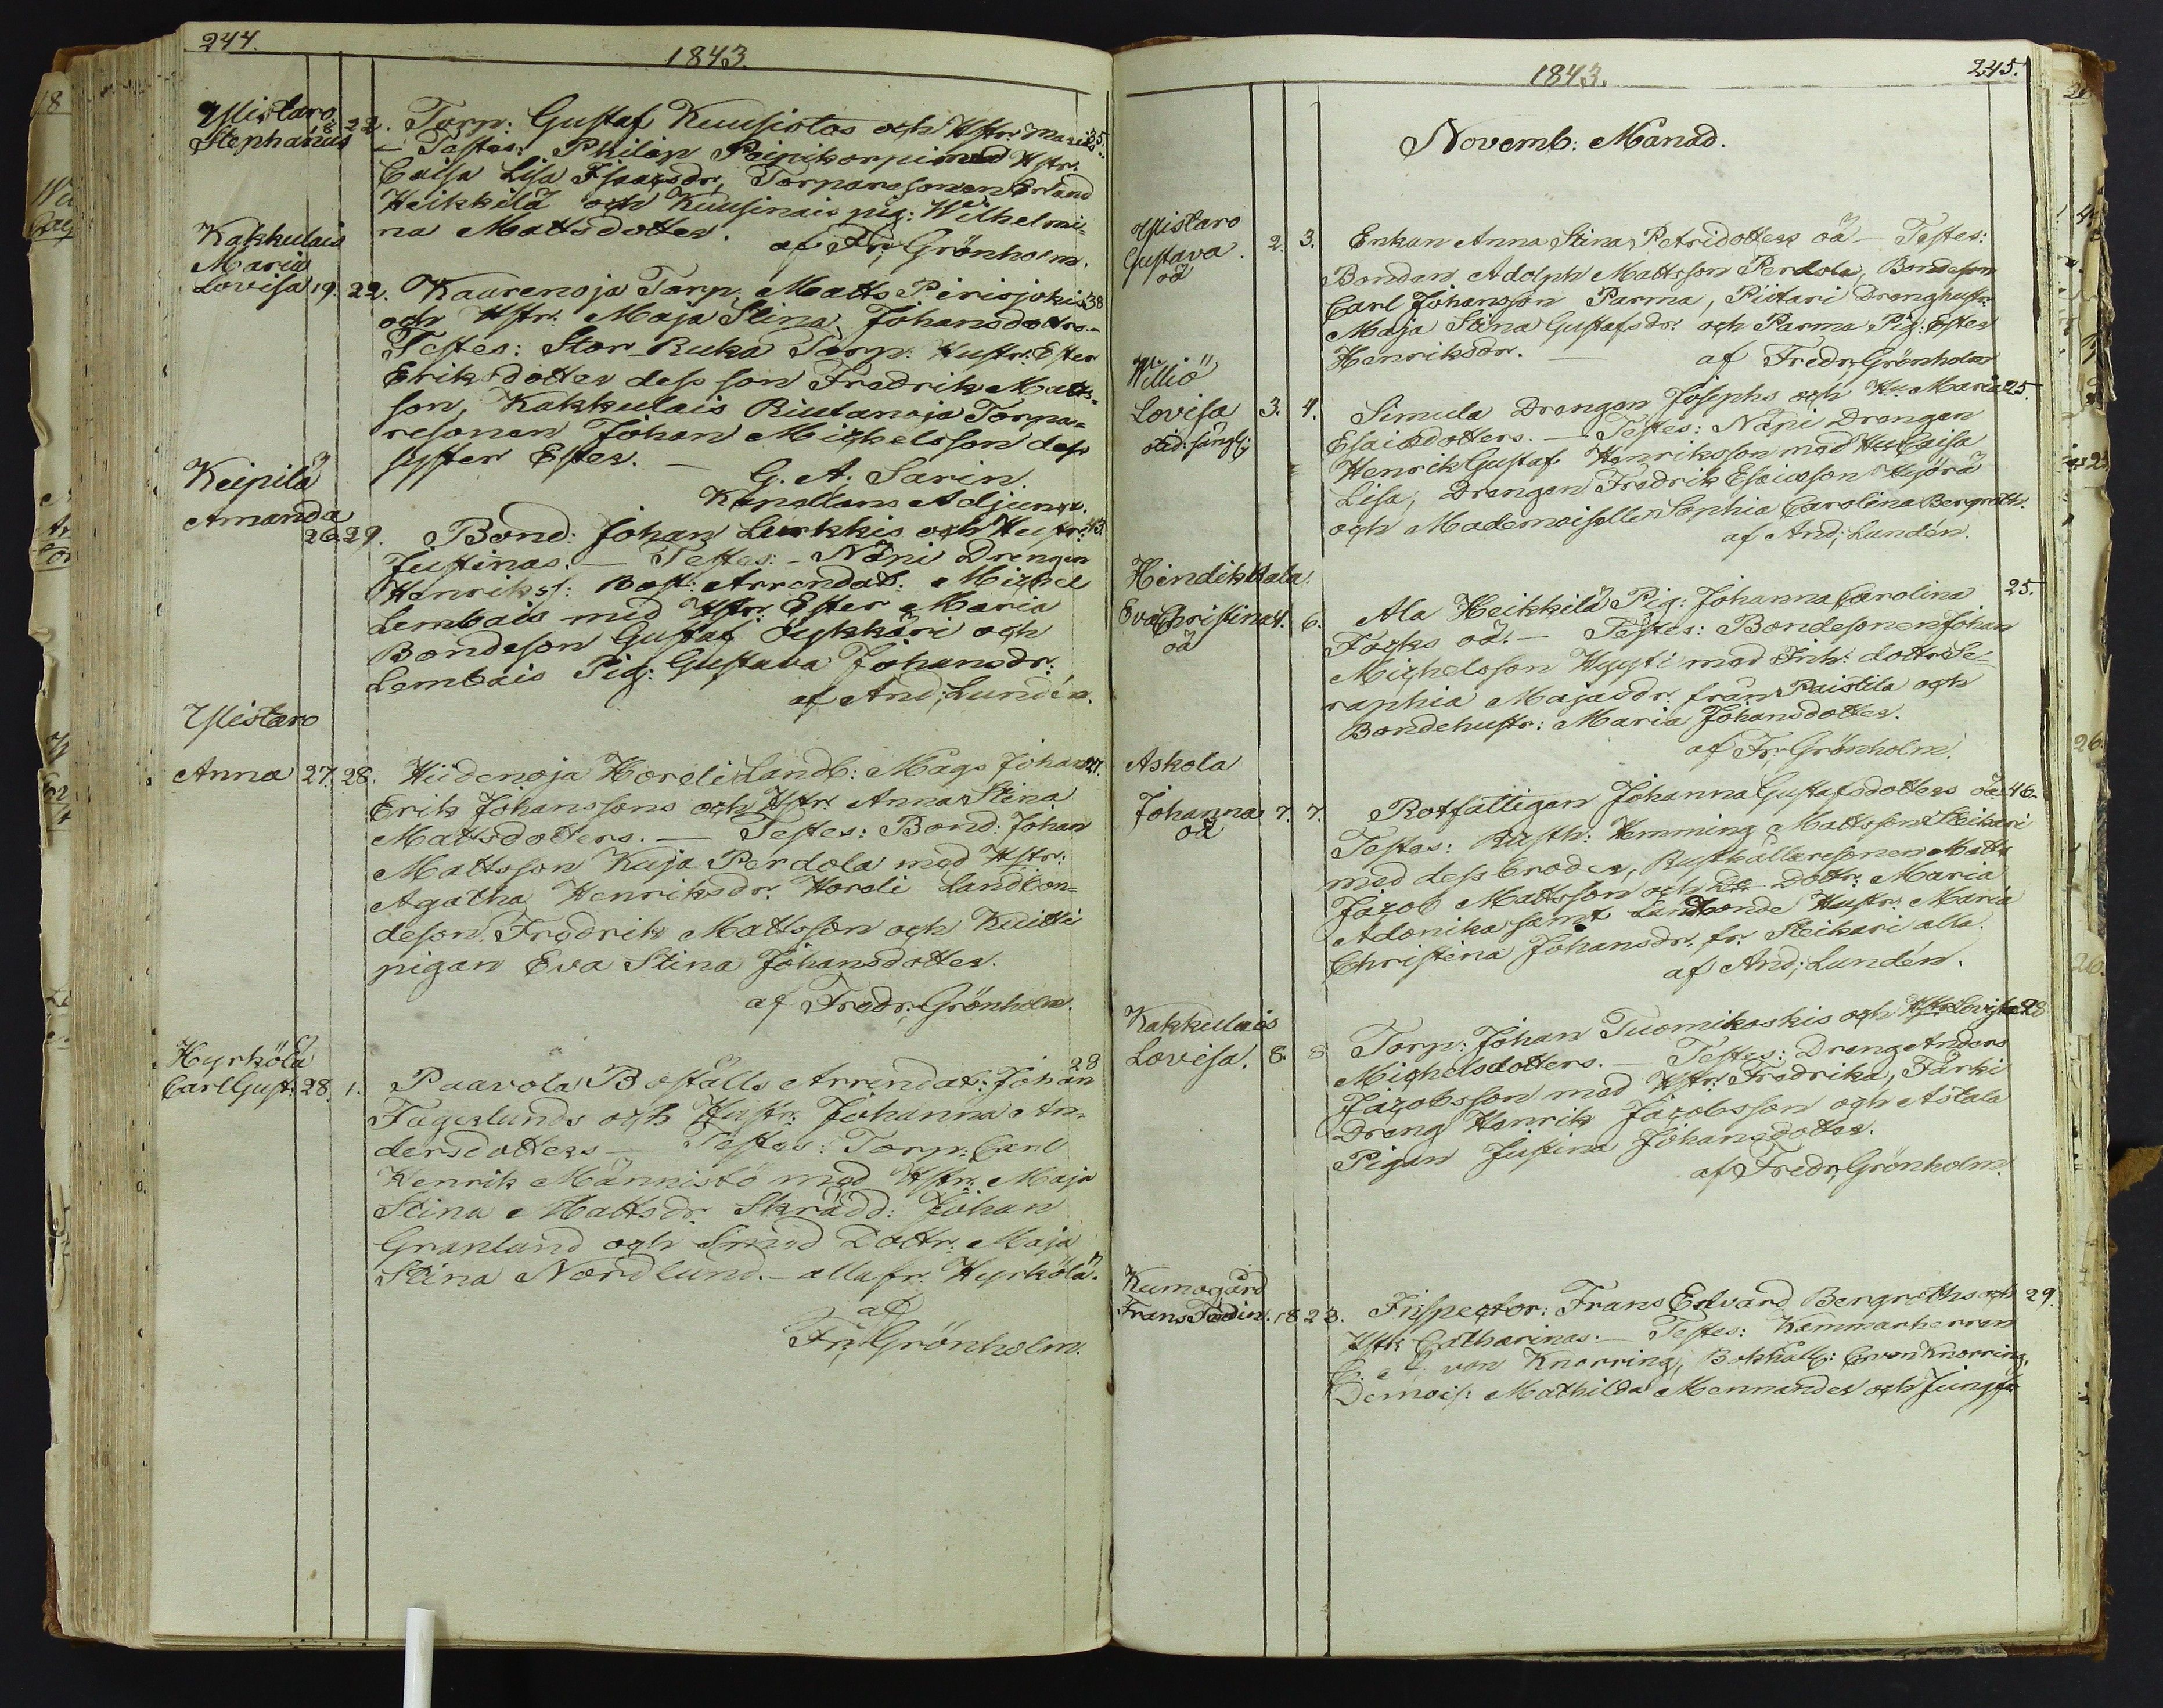 244.
1843.
Ylistaro
Stephanus 18 22. Torp: Gustaf Kuusistos och Hstr Marias 35.
— Testes: Philip Peipikorpi med Hstr:
Caisa Lisa Isacsdr, Torparesonen Erland
Heikkilä och Kuusinais pig: Wilhelmi-
na Mattsdotter.
af Fr; Grönholm.
Kakkulais
Maria
Lovisa 19. 22. Kaurenoja Torp: Matts Pirisjokis 38
och Hstr: Maja Stina Johansdotters.—
Testes: Stor-Ruka Torp: Hustr: Ester
Eriksdotter dess son Fredrik Matts-
son, Kakkulais Riutanoja Torpa-
resonen Johan Michelsson dess
syster Ester. —
G. A. Sarin.
Kapellans Adjunct.
Keipilä
Amanda
26. 29. Bond: Johan Lurkkis och Hustr: 43.
Justinas. — Testes: — Näpi Drengen
Henrikss: Bost: Arrendat: Michel
Lembais med Hstr: Ester Maria
Bondeson Gustaf Öykkäri och
Lembais Pig: Gustava Johansdr.
af And; Lundén.
Ylistaro
Anna 27. 28. Hiidenoja Hordli Landb: Mågs Johan 27.
Erik Johanssons och Hstr: Anna Stina
Mattsdotters. — Testes: Bond: Johan
Mattsson Kuja Perdola med Hstr:
Agatha Henriksdr. Hordli Landbon-
deson Fredrik Mattsson och Kuitti
pigan Eva Stina Johansdotter.
af Fredr; Grönholm.
Hyrkölä
Carl Gust: 28. 1. Paavola Boställs Arrendat: Johan 28
Fagerlunds och Hustr: Johanna An-
dersdotters — Testes: Torp: Carl
Henrik Männistö med Hstr: Maja
Stina Mattsdr. Skrädd: Johan
Granlund och Smed Dottr: Maja
Stina Nordlund. — alla fr. Hyrkölä.
af
Fr; Grönholm.
1843.
245.
Novemb: Månad.
Ylistaro
Gustava 2. 3. Enkan Anna Stina Petridotters oä — Testes:
oä
Bonden Adolph Mattsson Perdola, Bondeson
Carl Johansson Parma, Piitari Drenghustr:
Maja Stina Gustafsdr. och Parma Pig: Ester
Henriksdr. — af Fredr; Grönholm
Williö
Lovisa 3. 4. Simula Drengen Josephs och Hu: Maria 25.
Esaiædotters. — Testes: Näpi Drengen
Henrik Gustaf Henriksson med Hu: Caisa
Lisa, Drengen Fredrik Esaiæson Hyörä
och Mademoiselle Sophia Carolina Bergroth.
af And; Lundén.
Hindikkala.
Eva Christina 4. 6. Ala Heikkilä Pig: Johanna Carolina 25.
oä
Focks oä. — Testes: Bondesonen Johan
Michelsson Hyyti med Inh: dottr: Se-
raphia Majasdr. från Paistila och
Bondehustr: Maria Johansdotter.
af Fr; Grönholm.
Askola
Johanna 7. 7. Rotfattigan Johanna Gustafsdotters oä. 46.
oä
Testes: Rusth: Hemming Mattsson Steikari
med dess broder, Rusthållaresonen Matts
Jacob Mattsson och Do Dottr: Maria
Adonika samt Landbonde Hustr: Maria
Christina Johansdr. fr. Steikari alla.
af And; Lundén.
Kakkulais
Lovisa. 8. 8 Torp: Johan Tuomikoskis och Hstr: Lovisa 28
Michelsdotters. — Testes: Dreng Anders
Jacobsson med Hstr: Fredrika, Färki
Dreng Henrik Jacobsson och Astala
Pigan Justina Johansdotter.
af Fredr; Grönholm.
Kumogård
Frans 18 23. Inspector: Frans Edvard Bergroths och 29.
Hstr: Catharinas. — Testes: Kammarherren
von Knorring, Bokhåll: von Knorring,
Demois: Mathilda Mennander och Jungfr